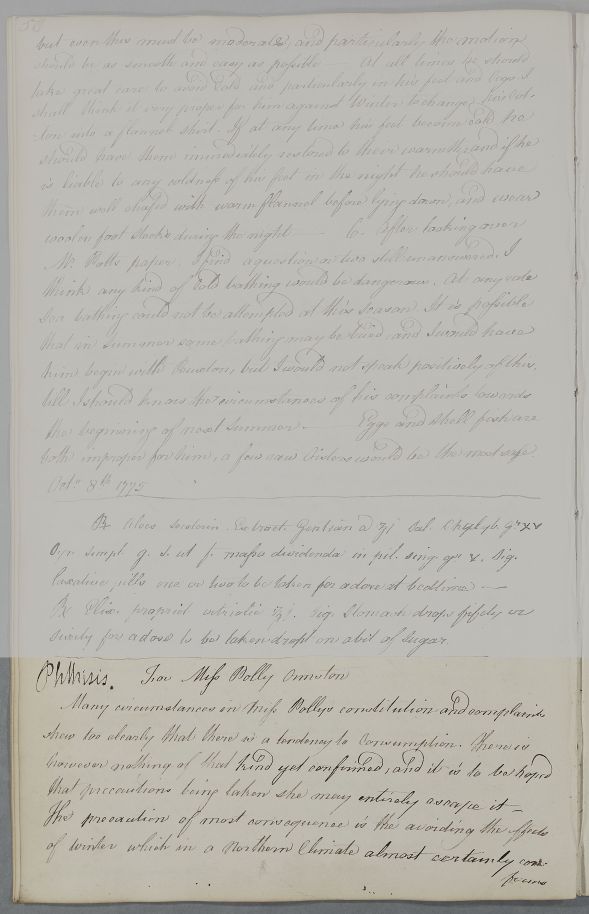 but even this must be moderate, and particularly the motion
should be as smooth and easy as possible — At all times he should
take great care to avoid Cold and particularly in his feet and legs I
shall think it very proper for him against Winter to change his Cot-
ton into a flannel shirt. If at any time his feet become cold he
should have them immediately restored to their warmth, and if he
is liable to any coldness of his feet in the night he should have
them well chafed with warm flannel before lying down, and wear
woolen foot socks during the night — 6. After looking over
Mr. Potts paper. I find a question or two still unanswered. I
think any kind of Cold bathing would be dangerous. At any rate
Sea bathing could not be attempted at this season. It is possible
that in summer some bathing may be tried and I would have
him begin with Buxton, but I would not speak positively of this,
till I should know the circumstances of his complaints towards
the beginning of next summer. — Eggs and shell fish are
both improper for him, a few raw Oisters would be the most safe.
Octr. 8th 1775
℞ Aloes socotorin. Extract. Gentian a ʒj Sal. Chalyb. grxv
Syr simpl q. s. ut f. massa dividenda in pil. sing gr v. Sig.
Laxative pills one or two to be taken for a dose at bedtime —
℞ Elix. propriet vitriolic ℥j. Sig. Stomach drops fifty or
sixty for a dose to be taken dropt on a bit of sugar.
Phthisis. For Miss Polly Ormston
Many circumstances in Miss Pollys constitution and complaints
shew too clearly that there is a tendency to Consumption. There is
however nothing of that kind yet confirmed, and it is to be hoped
that precautions being taken she may entirely escape it —
The precaution of most consequence is the avoiding the effects
of Winter which in a Northern Climate almost certainly con-
firms